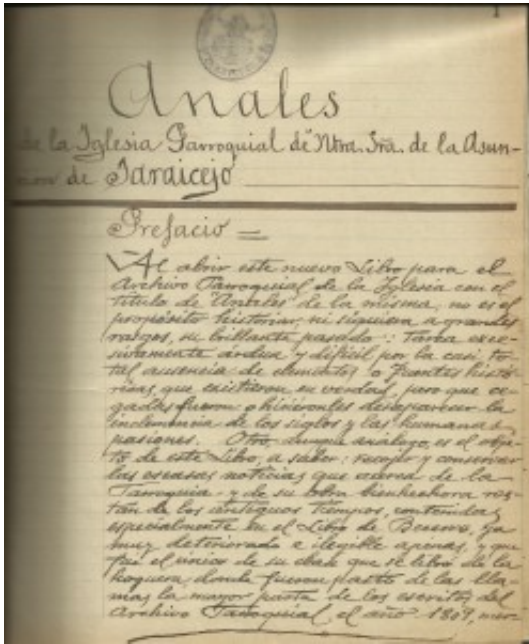 1
Anales
de la Iglesia Parroquial de Ntra. Sra. de la Asun-
cion de Jaraicejo
Prefacio =
Al abrir este nuevo Libro para el
Archivo Parroquial de la Iglesia con el
título de "Anales" de la misma, no es el
propósito historiar, ni siquiera a grandes
rasgos, su brillante pasado: tarea exce-
sivamente árdua y difícil por la casi to-
tal ausencia de elementos o fuentes histó-
ricas, que existieron en verdad, pero que ce-
gadas fueron o hiciéronles desaparecer la
inclemencia de los siglos y las humanas
pasiones. Otro, aunque análogo, es el obje-
to de este Libro, a saber: recoger y conservar
las escasas noticias que acerca de la
Parroquia y de su obra bienhechora res-
tan de los antiguos tiempos, contenidas
especialmente en el Libro de Becerro, ya
muy deteriorado e ilegible apenas, y que
fué el único de su clase que se libró de la
hoguera, donde fueron pasto de las lla-
mas la mayor parte de los escritos del
Archivo Parroquial, el año 1809, mer-